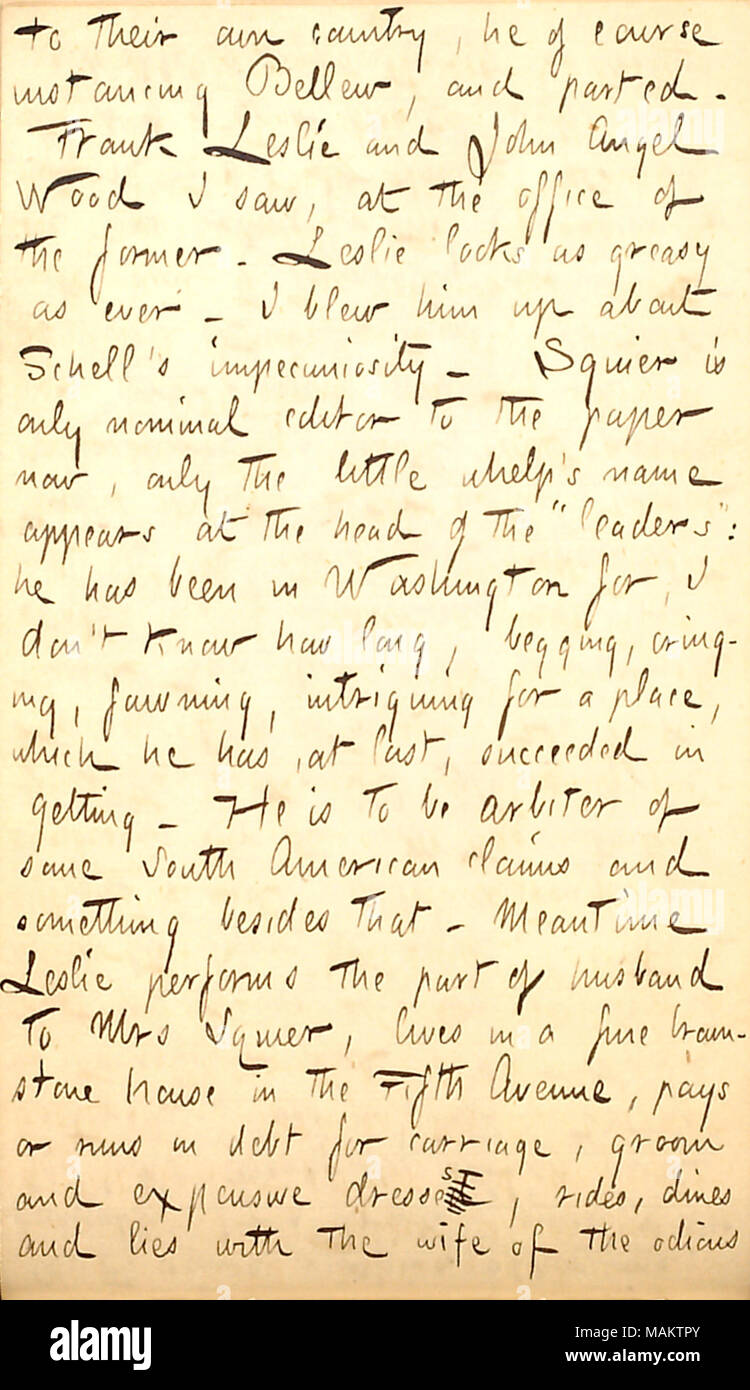 to their own country, he of course
instancing Bellew, and parted.
Frank Leslie and John Angel
Wood I saw, at the office of
the former. Leslie looks as greasy
as ever. I blew him up about
Schell's impecuniosity. Squier is
only nominal editor to the paper
now, only the little whelp's name
appears at the head of the "leaders":
he has been in Washington for, I
don't know how long, begging, cring-
ing, fawning, intriguing for a place,
which he has, at last, succeeded in
getting. He is to be arbiter of
some South American claims and
something besides that. Meantime
Leslie performs the part of husband
to Mrs Squier, lives in a fine brown-
stone house in the Fifth Avenue, pays
or runs in debt for carriage, groom
and expensive dresses, rides, dines
and lies with the wife of the odious
alamy
Image ID: MAKTPY
www.alamy.com